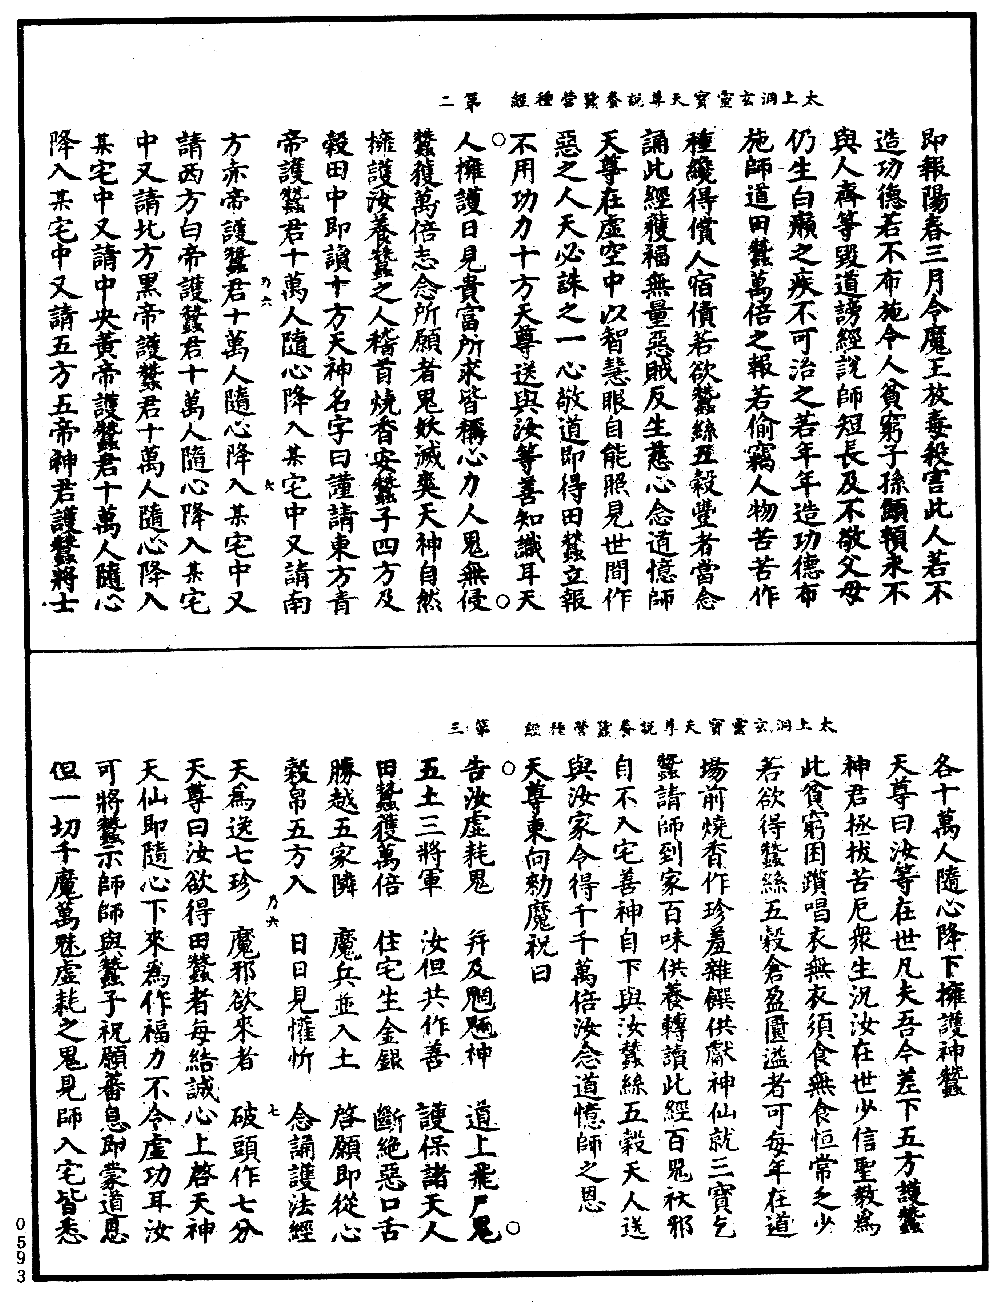 太上洞玄靈寶天尊說養蠶營種經　第二
即報陽春三月令魔王放毒殺害此人若不
造功德若不布施令人貧窮子孫顛賴永不
與人齊等毀道謗經說師短長及不敬父母
仍生白癩之疾不可治之若年年造功德布
施師道田蠶萬倍之報若偷竊人物苦苦作
種纔得償人宿債若欲蠶絲五穀豐者當念
誦此經獲福無量惡賊反生慈心念道憶師
天尊在虛空中以智慧眼自能照見世間作
惡之人天必誅之一心敬道即得田蠶立報
不用功力十方天尊送與汝等善知識耳天
人擁護日見貴富所求皆稱心力人鬼無侵
蠶獲萬倍志念所願者鬼妖滅爽天神自然
擁護汝養蠶之人稽首燒香安蠶子四方及
穀田中即讀十方天神名字曰謹請東方青
帝護蠶君十萬人隨心降入某宅中又請南
乃六　九
方赤帝護蠶君十萬人隨心降入某宅中又
請西方白帝護蠶君十萬人隨心降入某宅
中又請北方黑帝護蠶君十萬人隨心降入
某宅中又請中央黃帝護蠶君十萬人隨心
降入某宅中又請五方五帝神君護蠶將士
太上洞玄靈寶天尊說養蠶營種經　第三
各十萬人隨心降下擁護神蠶
天尊曰汝等在世凡夫吾今差下五方護蠶
神君極拔苦厄眾生況汝在世少信聖教為
此貧窮困躓唱衣無衣須食無食恒常乏少
若欲得蠶絲五穀倉盈匱溢者可每年在道
場前燒香作珍羞雜饌供獻神仙就三寶乞
蠶請師到家百味供養轉讀此經百鬼祅邪
自不入宅善神自下與汝蠶絲五穀天人送
與汝家令得千千萬倍汝念道憶師之恩
天尊東向勑魔祝曰
告汝虛耗鬼　并及魍魎神　道上飛尸鬼
五土三將軍　汝但共作善　護保諸天人
田蠶獲萬倍　住宅生金銀　斷絕惡口舌
勝越五家隣　魔兵並入土　啓願即從心
穀帛五方入　日日見懽忻　念誦護法經
乃六　七
天為送七珍　魔邪欲來者　破頭作七分
天尊曰汝欲得田蠶者每結誠心上啓天神
天仙即隨心下來為作福力不令虛功耳汝
可將蠶示師師與蠶子祝願蕃息即蒙道恩
但一切千魔萬魅虛耗之鬼見師入宅皆悉
0593